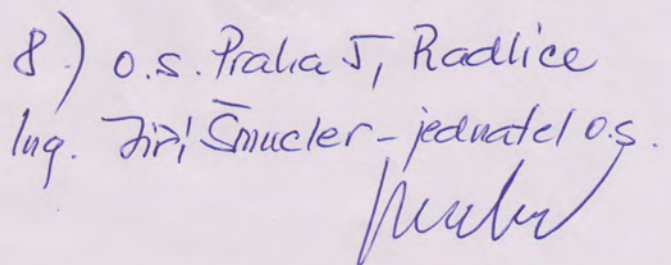 8.) o.s. Praha 5, Radlice
Ing. Jiří Šmucler - jednatel o.s.